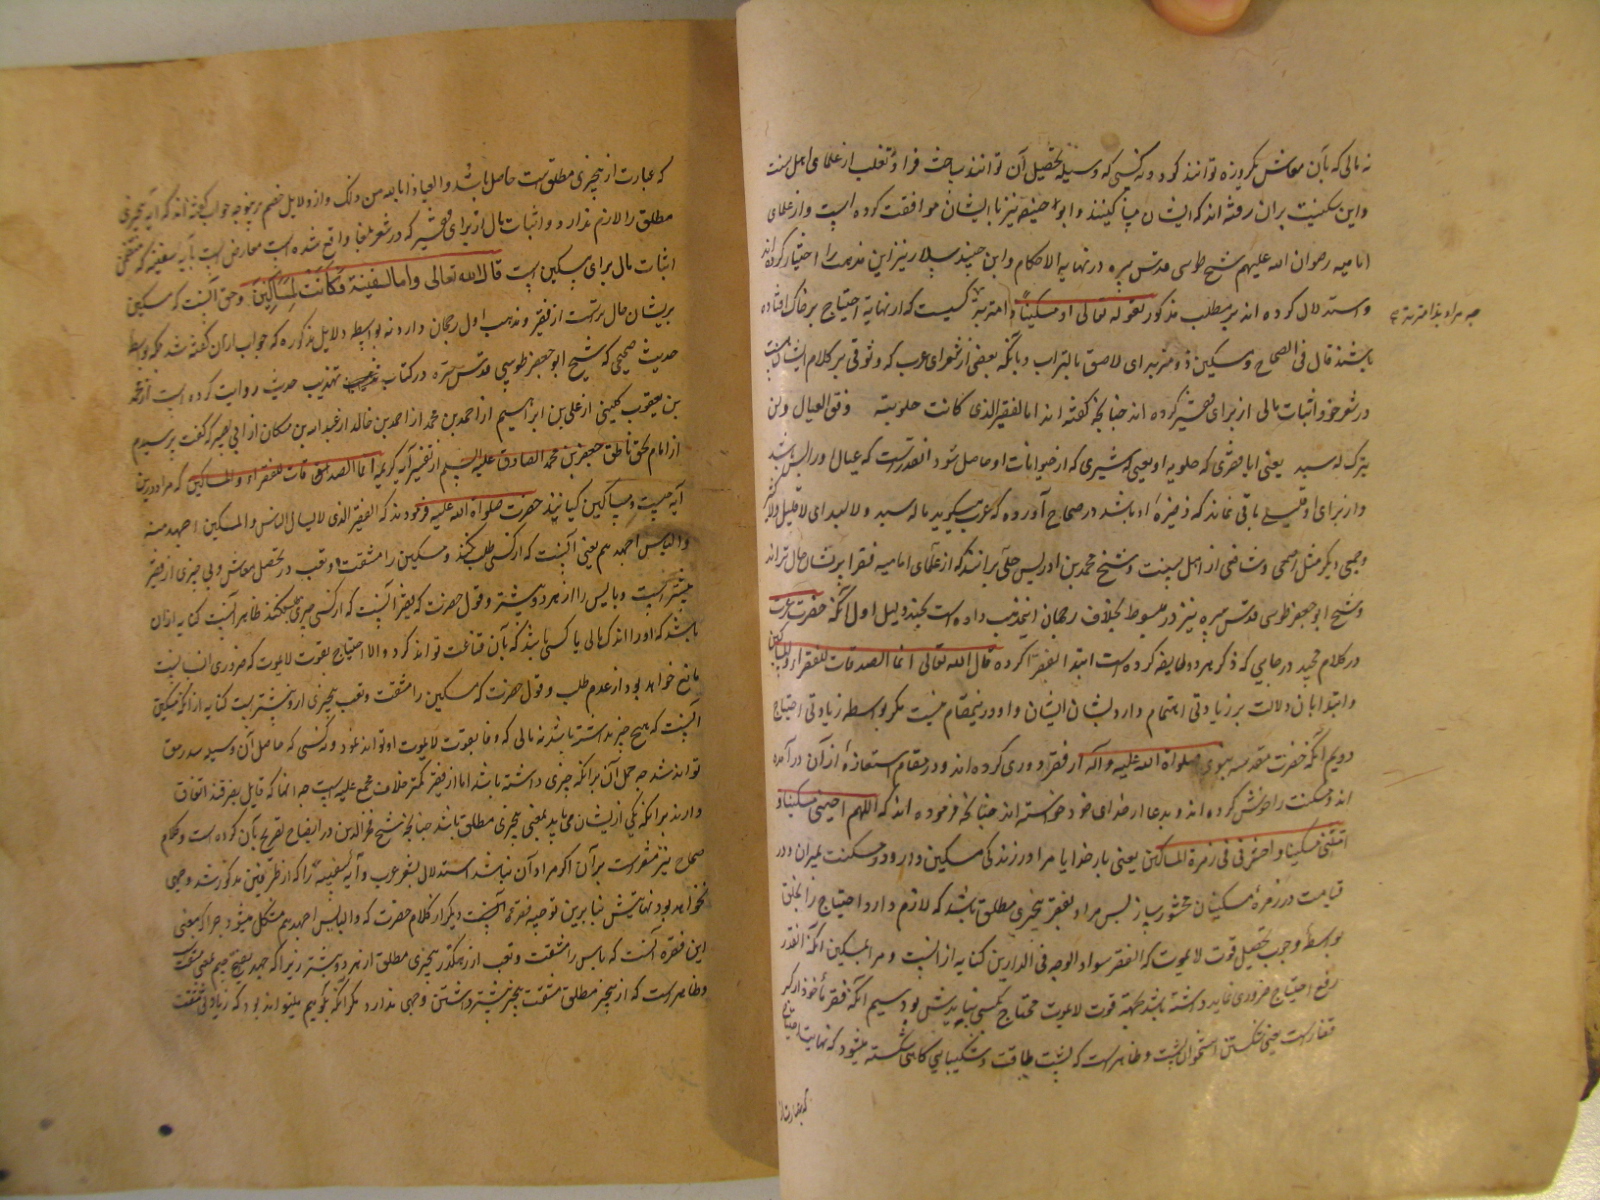 نه مالی که بآن معاش یکروزه توانند کرد و نه کسی که وسیله تحصیل آن توانند ساخت فرا و ثعلب از علمای اهل سنت
و ابن سکیت بران رفته اند که ایشان مساکینند و ابو حنیفه نیز با ایشان موافقت کرده است و از علمای
امامیه رضوان الله علیهم شیخ طوسی قدس سره در نهایه الاحکام و ابن جنید و سلار نیز این مذهب را اختیار کرده اند
و استدلال کرده اند بر مطلب مذکور بقوله تعالی او مسکینا ذا متربة کسیست که از نهایة احتیاج بر خاک افتاده
باشد قال فی الصحاح و مسکین ذو متربه ای لاصق بالتراب و بانکه بعضی از شعرای عرب که وثوقی بر کلام ایشان هست
در شعر خود اثبات مالی از برای فقیر کرده اند چنانچه گفته اند اما الفقیر الذی کانت حلوبته وفق العیال ولن
یترک له سبد یعنی اما فقیری که حلوبه او یعنی شیری که از حیوانات او حاصل شود انقدر است که عیال او را بس باشد
و از برای او باقی نماند که ذخیره او باشد در صحاح آورده که عرب میگوید ماله سبد و لا لبد ای لا قلیل و لا کثیر
و جمعی دیگر مثل اصمعی و شافعی از اهل سنت و شیخ محمد بن ادریس حلی برانند که از علمای امامیه فقرا پریشان حال تراند
و شیخ ابو جعفر طوسی قدس سره نیز در مبسوط بخلاف رجحان این مذهب داده است بچند دلیل اول انکه حضرت عزت
در کلام مجید در جایی که ذکر هر دو طایفه کرده است ابتدا بفقرا کرده قال الله تعالی انما الصدقات للفقراء و المساکین
و ابتدا بان دلالت بر زیادتی اهتمام دارد بشان ایشان و او درینمقام نیست مکر بواسطه زیادتی احتیاج
دویم انکه حضرت مقدسه نبوی صلواة الله علیه و آله از فقر دوری کرده اند و در مقام استعاذه از آن در آمده
اند و مسکنت را خوش کرده اند و بدعا از خدای خود خواسته اند چنانچه فرموده اند که اللهم احینی مسکینا و
امتنی مسکینا و احشرنی فی زمرة المساکین یعنی بار خدایا مرا در زندکی مسکین دار و در مسکنت بمیران و در
قیامت در زمره مسکینان محشور ساز پس مراد بفقر بیچیزی مطلق باشد که لازم دارد احتیاج را بخلق
بواسطه وجوب تحصیل قوت لایموت که الفقر سواد الوجه فی الدارین کنایه از انست و مراد بمسکین انکه انقدر
رفع احتیاج ضروری نماید داشته باشد بجهة قوت لایموت محتاج بکسی نبایدش بود سیم انکه فقر مأخوذ از کسر
فقار است یعنی شکستن استخوان پشت و ظاهر است که پشت طاقت و شکیبایی کاهی شکسته میشود که نهایت احتیاج
که عبارت از
که عبارت از بیچیزی مطلق است حاصل باشد و العیاذ بالله من ذلک و از دلایل خصم برینوجه جواب گفته اند که آیه بیچیزی
مطلق را لازم ندارد و اثبات مال از برای فقیر که در شعر شعرا واقع شده است معارض است بآیه سفینه که مقتضی
اثبات مال برای مسکین است قال الله تعالی و اما السفینة فکانت لمساکین و حق آنست که مسکین
پریشان حال ترست از فقیر و مذهب اول رجحان دارد نه بواسطه دلایل مذکوره که جواب از آن گفته شد بلکه بواسطه
حدیث صحیحی که شیخ ابو جعفر طوسی قدس سره در کتاب تهذیب حدیث روایت کرده است از محمد
بن یعقوب کلینی از علی بن ابراهیم از احمد بن محمد از احمد بن خالد از عبدالله بن مسکان از ابی بصیر که گفت پرسیدم
از امام بحق ناطق جعفر بن محمد الصادق علیه السلم از تفسیر آیه کریمه انما الصدقات للفقراء و المساکین که مراد درین
آیه چیست و مساکین کیانند حضرت صلواة الله علیه فرمودند که الفقیر الذی لا یسال الناس و المسکین اجهد منه
و البایس اجهدهم یعنی آنست که از کسی طلب نکند و مسکین را مشقت و تعب در تحصیل معاش و بی چیزی از فقیر
بیشتر است و بایس را از هر دو بیشتر و قول حضرت که فقیر آنست که از کسی چیزی طلب نکند ظاهر آنست کنایه از آن
باشد که او را اندک مالی یا کسبی باشد که بآن قناعت تواند کرد و الا احتیاج بقوت لایموت که ضروری انسانیست
مانع خواهد بود از عدم طلب و قول حضرت که مسکین را مشقت و تعب بیچیزی از و بیشتر است کنایه از آنکه مسکین
آنست که هیچ چیز نداشته باشد نه مالی که وفا بقوت لایموت او تواند نمود و نه کسبی که حاصل آن وسیله سد رمق
تواند شد چه حمل آن بر آنکه چیزی داشته باشد اما از فقیر کمتر خلاف مجمع علیه است چه آنها که قایل بفرقند اتفاق
دارند بر آنکه یکی از ایشان می باید بمعنی بیچیزی مطلق باشد چنانچه شیخ فخر الدین در ایضاح تصریح بآن کرده است و کلام
صحاح نیز مشعرست بر آن اکر مراد آن نباشد استدلال بشعر عرب و آیه سفینه را که از طرفین مذکور شد وجهی
نخواهد بود نهایتش بنا برین توجیه فقره دیکر از کلام حضرت که و البایس اجهدهم مشکل میشود چرا که معنی
این فقره آنست که بایس را مشقت و تعب از رهکذر بیچیزی مطلق از هر دو بیشتر زیرا که جهد بفتح جیم بمعنی مشقت است
و ظاهر است که از بیچیز مطلق مشقت بیچیز بیشتر داشتن وجهی ندارد مکر آنکه بکوییم میتواند بود که زیادتی مشقت